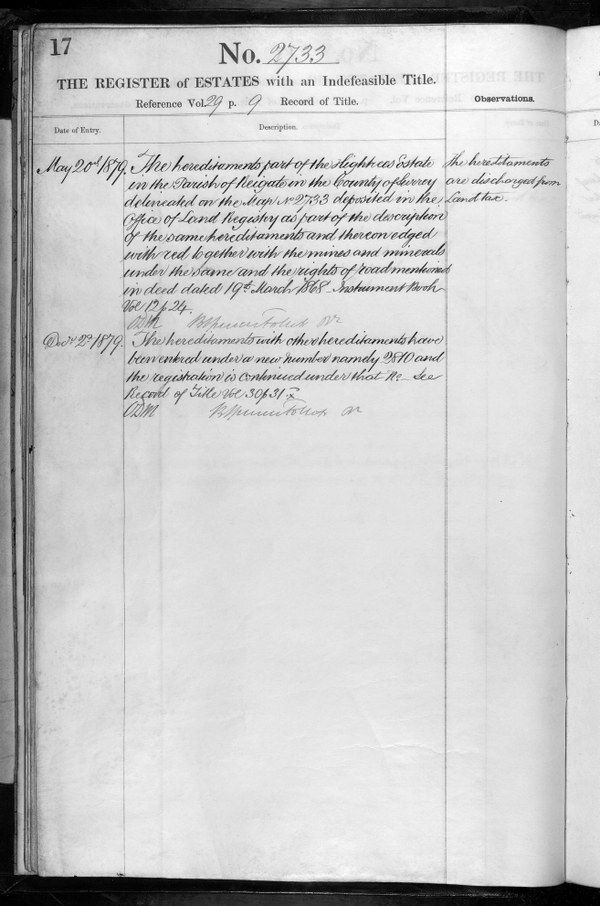 17
No. 2733
THE REGISTER of ESTATES with an Indefeasible Title.
Reference Vol. 29 p. 9 Record of Title.
Observations.
Date of Entry.
Description.
May 20th 1879. The hereditaments part of the Estate
in the Parish of Reigate in the County of Surrey
delineated on the Map No 2733 deposited in the
Office of Land Registry as part of the description
of the same hereditaments and thereon edged
with red together with the mines and minerals
under the same and the rights of road mentioned
in deed dated 19th March 1868 Instrument Book
Vol 12 p 24.
The hereditaments
are discharged from
Land tax.
Decr 2d 1879. The hereditaments with other hereditaments have
been entered under a new number namely 2810 and
the registration is continued under that No See
Record of Title Vol 30 p 31